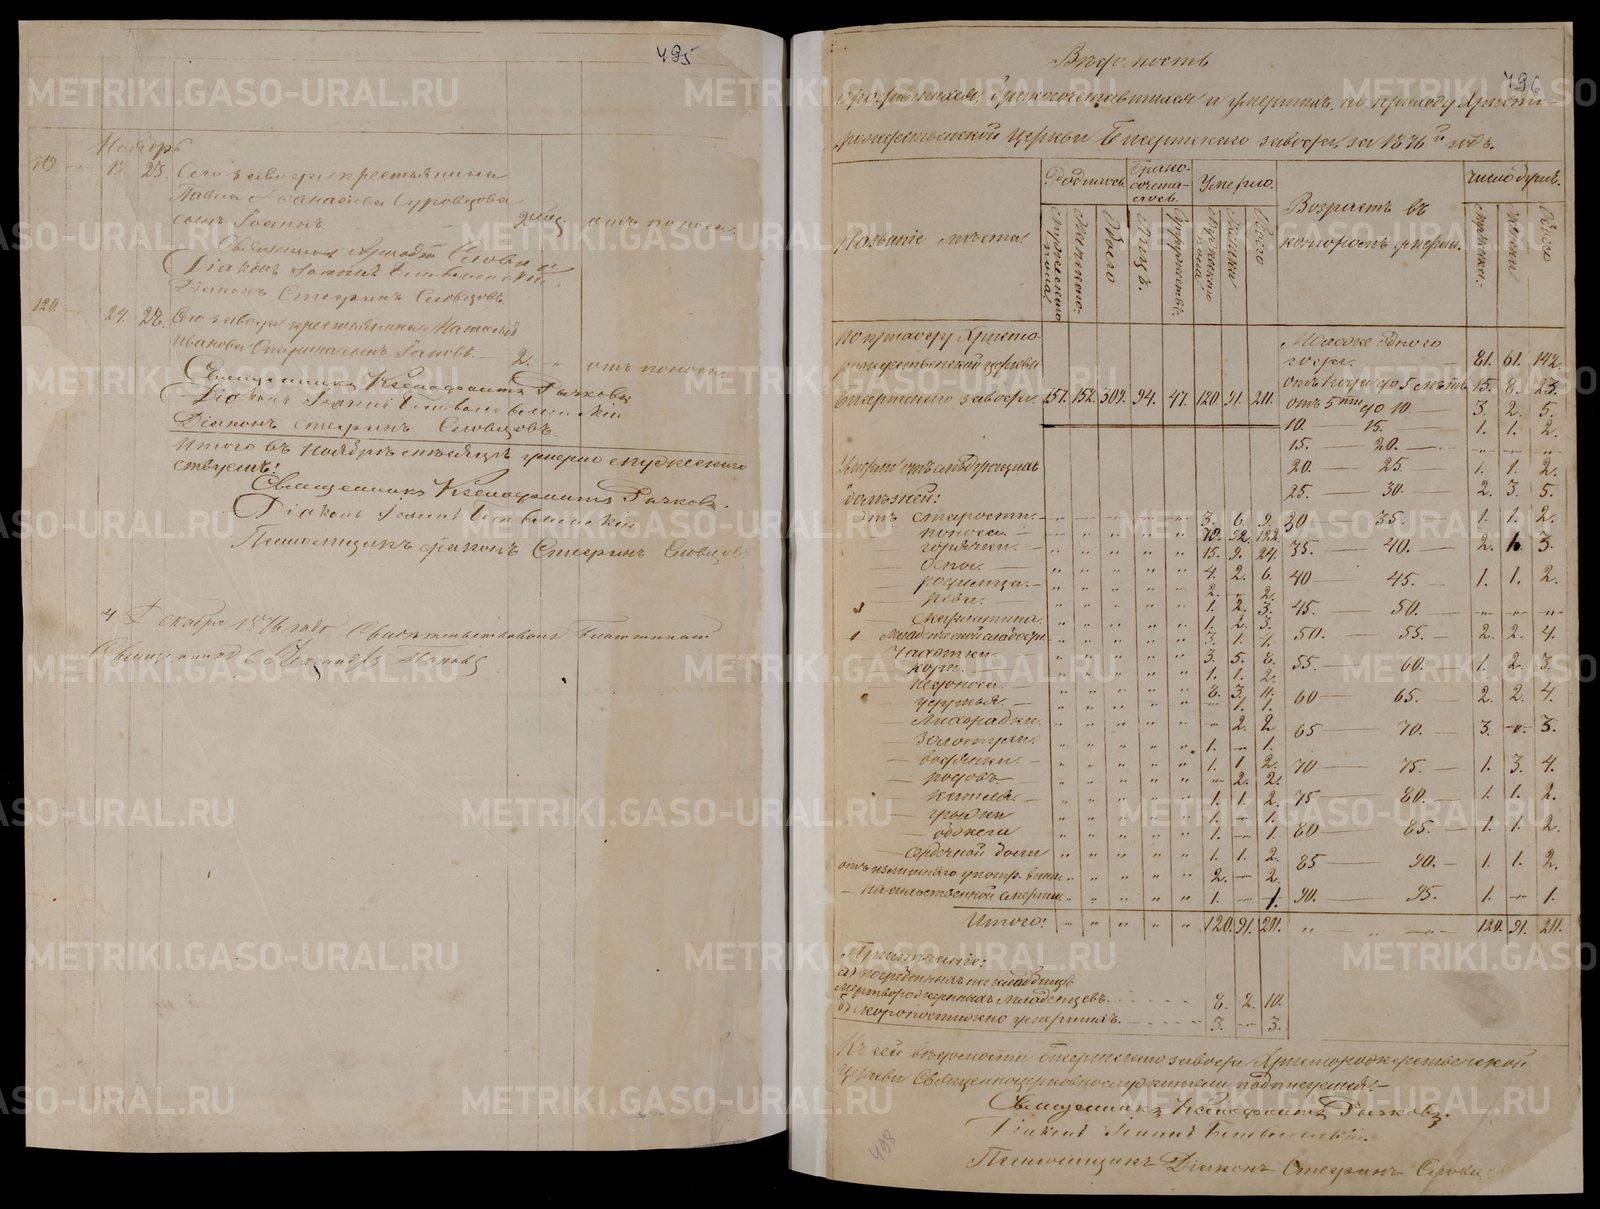 495
Ноябрь
119 13. 23. Сего завода крестьянина
Павла Суровцова
сынъ Іоаннъ. отъ поноса.
Діаконъ Іоаннъ
Діаконъ Стефанъ Словцовъ.
120. 24. 28. Сего завода крестьянина
Иванова сынъ 2. отъ поноса.
Священникъ Ксенофонтъ Рычковъ
Діаконъ Іоаннъ
Діаконъ Стефанъ Словцовъ.
Итого въ Ноябрѣ мѣсяцѣ умерло мужескаго
Священникъ Ксенофонтъ Рычковъ.
Діаконъ Іоаннъ
Псаломщикъ діаконъ Стефанъ Словцовъ
4 Декабря 1876 года Свидѣтельствовалъ Благочинный
Священникъ Александръ Поповъ
496
Вѣдомость
о родившихся, бракосочетавшихся и умершихъ, по приходу Христо-
рождественской Церкви Бисертскаго завода, за 1876й годъ.
Названіе мѣста.
Родилось.
Мужескаго пола.
Женскаго.
Всего
Бракосочеталось.
Лицъ.
Супружествъ.
Умерло.
Мужескаго пола.
Женска
Всего
Возрастъ въ
которомъ умерли.
Число душъ.
Мужска.
Женска
Всего
По приходу Христо-
рождественской церкви
Бисертскаго завода. 157. 152. 309. 94. 47. 120. 91. 211.
Моложе одного
года. 81. 61. 142.
отъ 1 года до 5 лѣтъ. 15. 8. 23.
отъ 5ти до 10. 3. 2. 5.
10. — 15. — 1. 1. 2.
15. — 20. — „ „ „
20. — 25. — 1. 1. 2.
25. — 30. — 2. 3. 5.
30 — 35. — 1. 1. 2.
35. — 40. — 2. 1. 3.
40 — 45. — 1. 1. 2.
45. — 50. — „ „ „
50. — 55. — 2. 2. 4.
55. — 60. — 1. 2. 3.
60 — 65. — 2. 2. 4.
65 — 70. — 3. „ 3.
70 — 75. — 1. 3. 4.
75 — 80. — 1. 1. 2.
80 — 85. — 1. 1. 2.
85 — 90. — 1. 1. 2.
90. — 95. — 1. „ 1.
Умерли отъ слѣдующихъ
болѣзней:
Отъ старости — 3. 6. 9.
— поноса. — 122
— горячки. — 15. 9. 24.
— оспы. — 4. 2. 6.
— родимца. — 2. „ 2.
— рвы. — 1. 2. 3.
— скарлатина. 1. 2. 3.
— Младенческой слабости. 3. 1. 4.
— Чахотки. 3. 5. 8.
— кори. — 1. 1. 2.
— недоноса. — 8. 3. 11.
— удушья. — „ 1. 1.
— Лихорадки. „ 2. 2
— золотухи. 1. „ 1.
— водянки. — 1. 1 2.
— родовъ — „ 2. 2.
— кашля. — 1. 1. 2.
— грыжи 1. „ 1.
— обжога 1. „ 1.
— сердечной боли 1. 1. 2.
отъ излишняго употр. вина. 2. „ 2.
— насильственной смерти. 1. „ 1.
Итого: 120. 91. 211. 120. 91. 211.
Примѣчаніе:
а) погребенныхъ на кладбищѣ
мертворожденныхъ младенцевъ. 8. 2. 10.
б) Скоропостижно умершихъ. 3. — 3.
Къ сей вѣдомости Бисертскаго завода Христорождественской
Церкви Священноцерковнослужители подписуемся:—
Священникъ Ксенофонтъ Рычковъ.
Діаконъ Іоаннъ
Псаломщикъ Діаконъ Стефанъ
498
METRIKI.GASO-URAL.RU